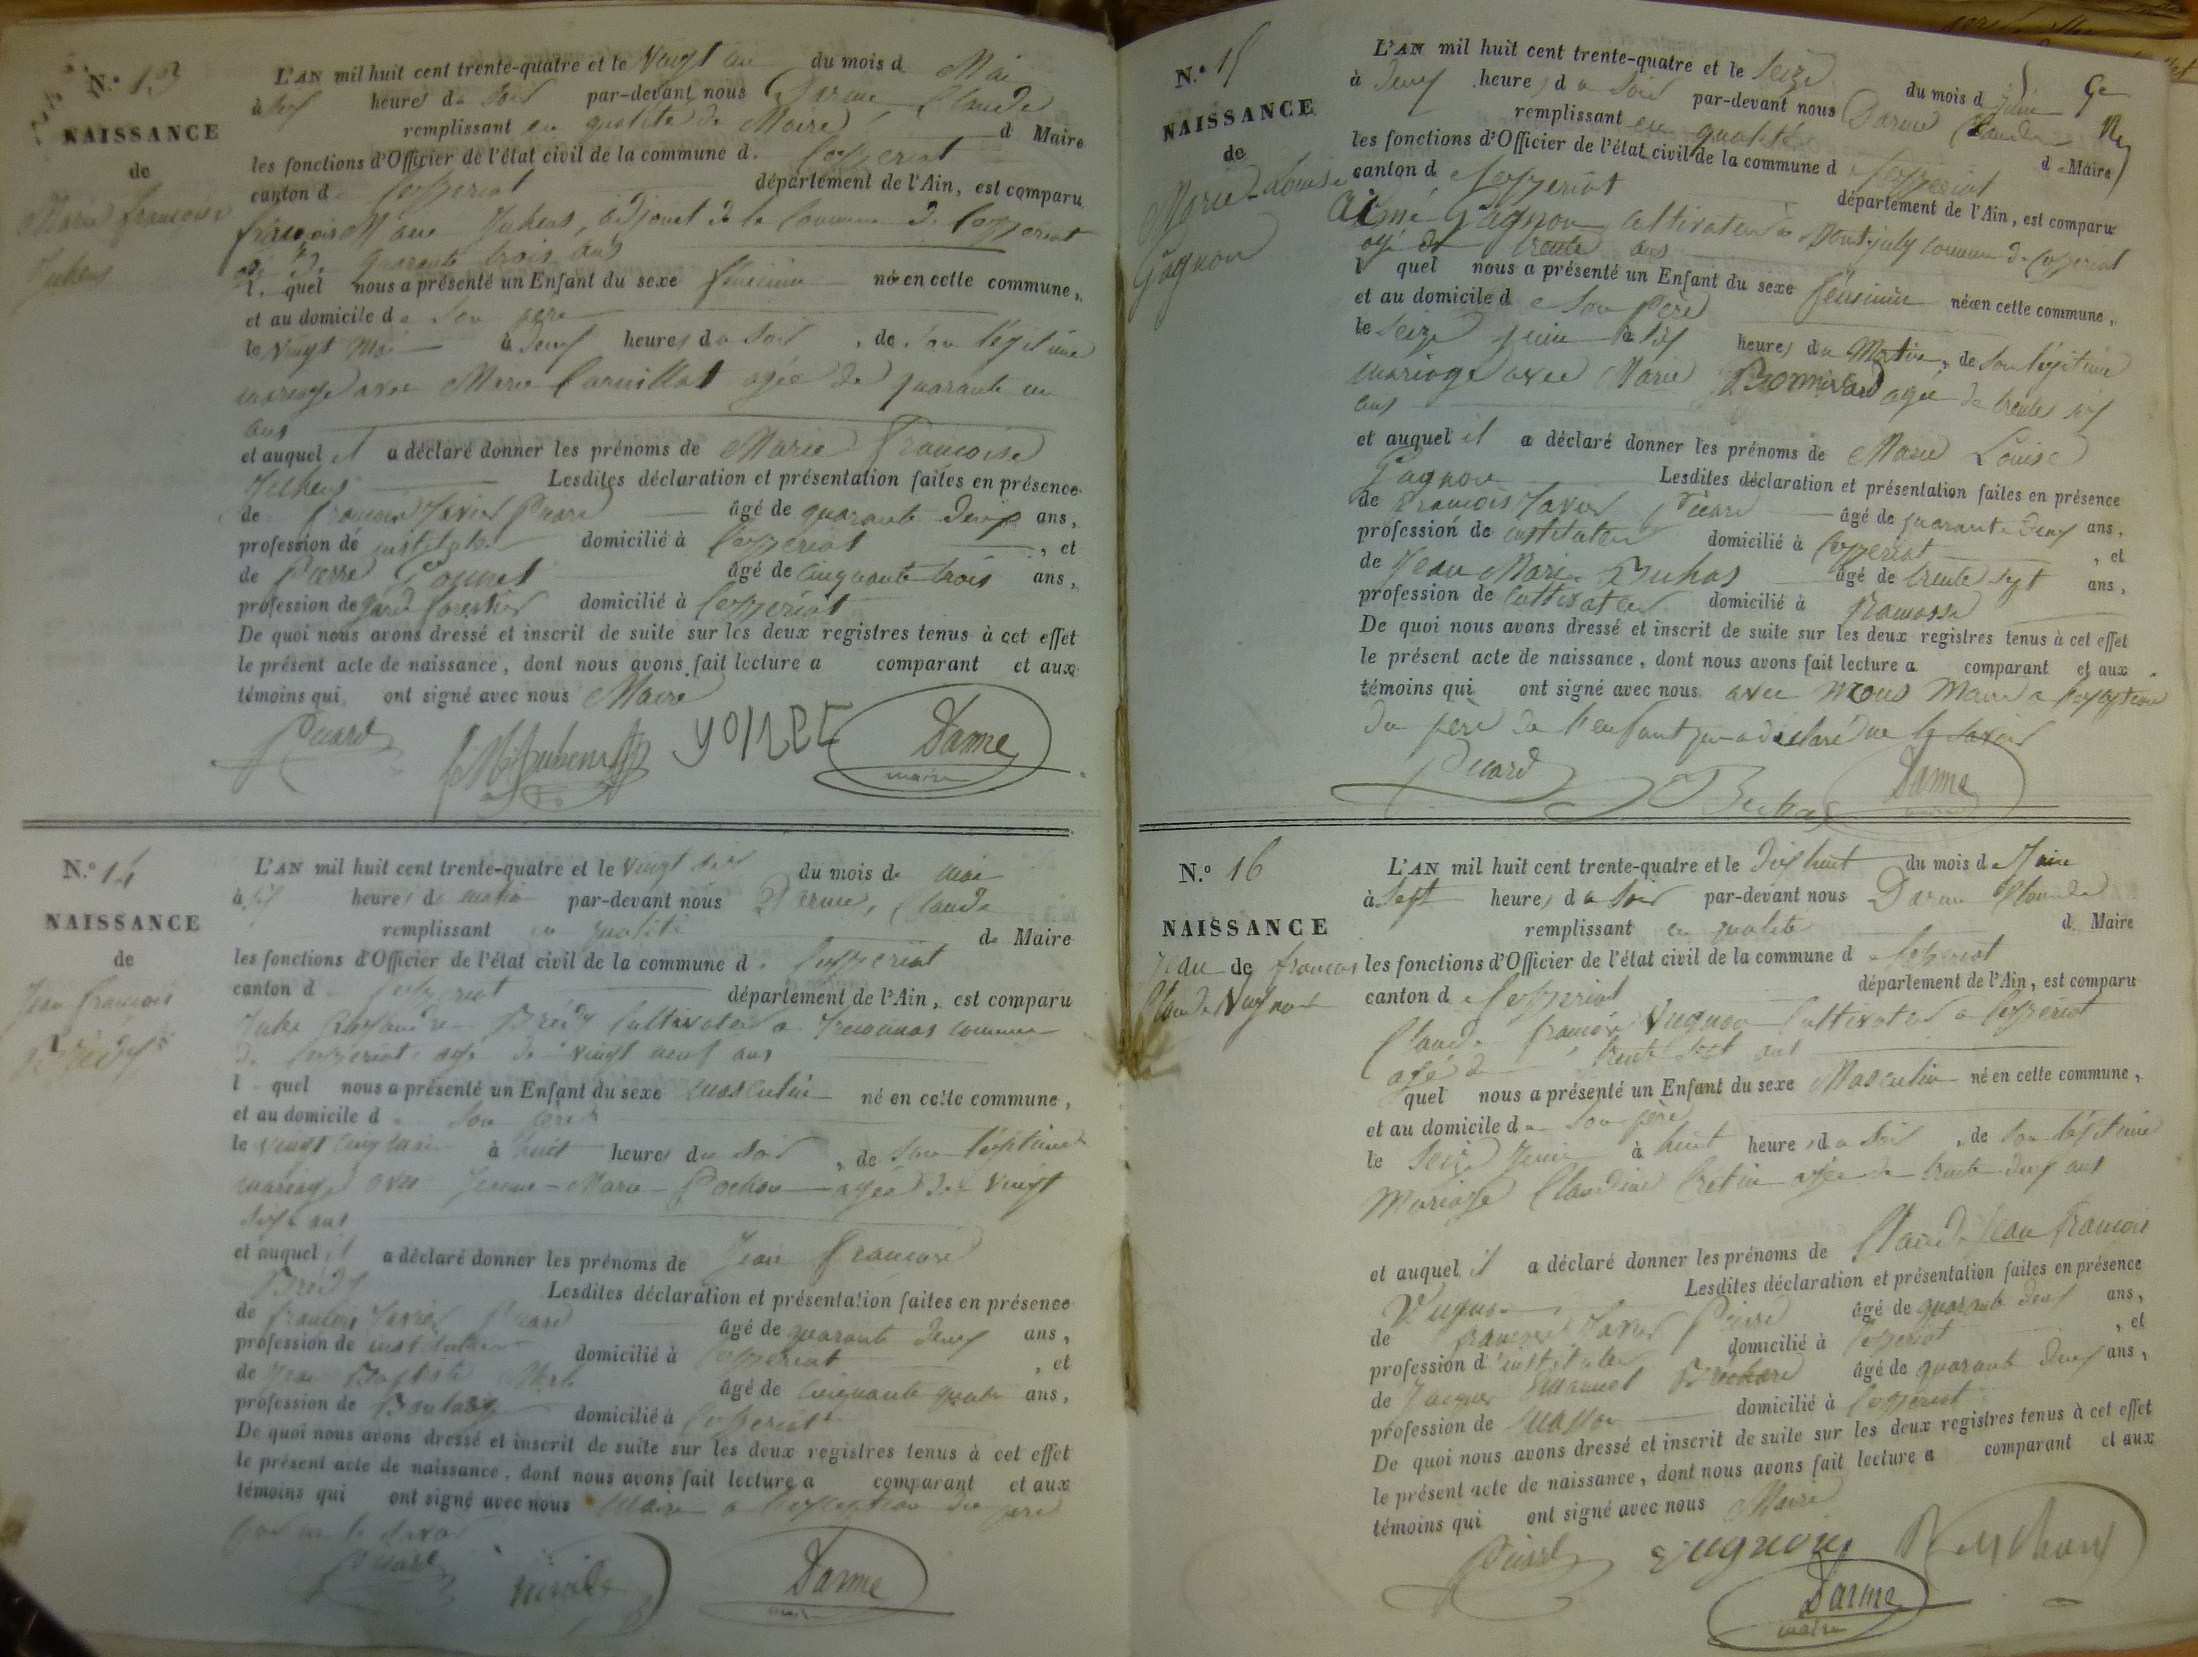 N.º 13
NAISSANCE
de
Marie françoise
Juhens
L'AN mil huit cent trente-quatre et le Vingt un du mois d Mai
à heures du Soir par-devant nous Darme, Claude
remplissant en qualité de Maire d Maire
les fonctions d'Officier de l'état civil de la commune d. Ceyzeriat
canton d Ceyzeriat département de l'Ain, est comparu
françois Marie Juhens, adjoint de la Commune de Ceyzeriat
agé de quarante trois ans
l. quel nous a présenté un Enfant du sexe féminin née en cette commune,
et au domicile de Son père
le vingt Mai à neuf heures du Soir, de son légitime
mariage avec Marie Carvillat agée de quarante un
ans
et auquel il a déclaré donner les prénoms de Marie Françoise
Juhens Lesdites déclaration et présentation faites en présence
de françois Xavier Picard âgé de quarante deux ans,
profession de instituteur domicilié à Ceyzeriat, et
de Pierre âgé de Cinquante trois ans,
profession de garde forestier domicilié à Ceyzeriat
De quoi nous avons dressé et inscrit de suite sur les deux registres tenus à cet effet
le présent acte de naissance, dont nous avons fait lecture a comparant et aux
témoins qui ont signé avec nous Maire
Picard Darme
maire
N.º 14
NAISSANCE
de
Jean françois
Brédy
L'AN mil huit cent trente-quatre et le vingt six du mois de mai
à six heures du matin par-devant nous Darme, Claude
remplissant en qualité de Maire
les fonctions d'Officier de l'état civil de la commune d. Ceyzeriat
canton d Ceyzeriat département de l'Ain, est comparu
Brédy Cultivateur a commune
de Ceyzeriat agé de vingt neuf ans
l quel nous a présenté un Enfant du sexe masculin né en cette commune,
et au domicile d Son père
le vingt cinq mai à huit heures du soir, de son légitime
mariage avec Jeanne-Marie-Pochon agée de vingt
ans
et auquel il a déclaré donner les prénoms de Jean François
Brédy Lesdites déclaration et présentation faites en présence
de françois Xavier Picard âgé de quarante deux ans,
profession de instituteur domicilié à Ceyzeriat, et
de Jean Baptiste âgé de Cinquante quatre ans,
profession de domicilié à Ceyzeriat
De quoi nous avons dressé et inscrit de suite sur les deux registres tenus à cet effet
le présent acte de naissance, dont nous avons fait lecture a comparant et aux
témoins qui ont signé avec nous Maire a l'exception du père
Picard Darme
maire
N.º 15
NAISSANCE
de
Marie-Louise
Gagnon
L'AN mil huit cent trente-quatre et le Seize du mois de Juin
à heures du Soir par-devant nous Darme Claude
remplissant en qualité d Maire
les fonctions d'Officier de l'état civil de la commune d Ceyzeriat
canton de Ceyzeriat département de l'Ain, est comparu
Aimé Gagnon Cultivateur à Montjuly commune de Ceyzeriat
agé de trente ans
l quel nous a présenté un Enfant du sexe féminin née en cette commune,
et au domicile de Son Père
le Seize Juin à six heures du Matin, de Son légitime
mariage avec Marie Bonnivard agée de trente six
ans
et auquel il a déclaré donner les prénoms de Marie Louise
Gagnon Lesdites déclaration et présentation faites en présence
de François Xavier Picard âgé de quarante deux ans,
profession de instituteur domicilié à Ceyzeriat, et
de Jean Marie Buhas âgé de trente sept ans,
profession de Cultivateur domicilié à Ramasse
De quoi nous avons dressé et inscrit de suite sur les deux registres tenus à cet effet
le présent acte de naissance, dont nous avons fait lecture a comparant et aux
témoins qui ont signé avec nous avec nous Maire a l'exception
du père de l'enfant qui a déclaré ne le savoir
Picard Buhas Darme
N.º 16
NAISSANCE
de
Jean françois
Claude Vugnon
L'AN mil huit cent trente-quatre et le Dix huit du mois de Juin
à Sept heures du Soir par-devant nous Darme Claude
remplissant en qualité d. Maire
les fonctions d'Officier de l'état civil de la commune d Ceyzeriat
canton de Ceyzeriat département de l'Ain, est comparu
Claude françois Vugnon Cultivateur a Ceyzeriat
agé de trente sept ans
quel nous a présenté un Enfant du sexe Masculin né en cette commune,
et au domicile de Son père
le Seize Juin à huit heures du Soir, de son légitime
Mariage Claudine Cretin agée de trente deux ans
et auquel il a déclaré donner les prénoms de Claude Jean François
Vugnon Lesdites déclaration et présentation faites en présence
de françois Xavier Picard âgé de quarante deux ans,
profession d'instituteur domicilié à Ceyzeriat, et
de Jacques Emanuel âgé de quarante deux ans,
profession de Masson domicilié à Ceyzeriat
De quoi nous avons dressé et inscrit de suite sur les deux registres tenus à cet effet
le présent acte de naissance, dont nous avons fait lecture a comparant et aux
témoins qui ont signé avec nous Maire
Picard Vugnon
Darme
maire